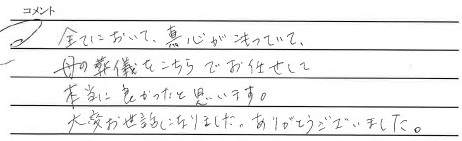 コメント
全てにおいて、真心がこもっていて、
母の葬儀をこちらでお任せして
本当に良かったと思います。
大変お世話になりました。ありがとうございました。